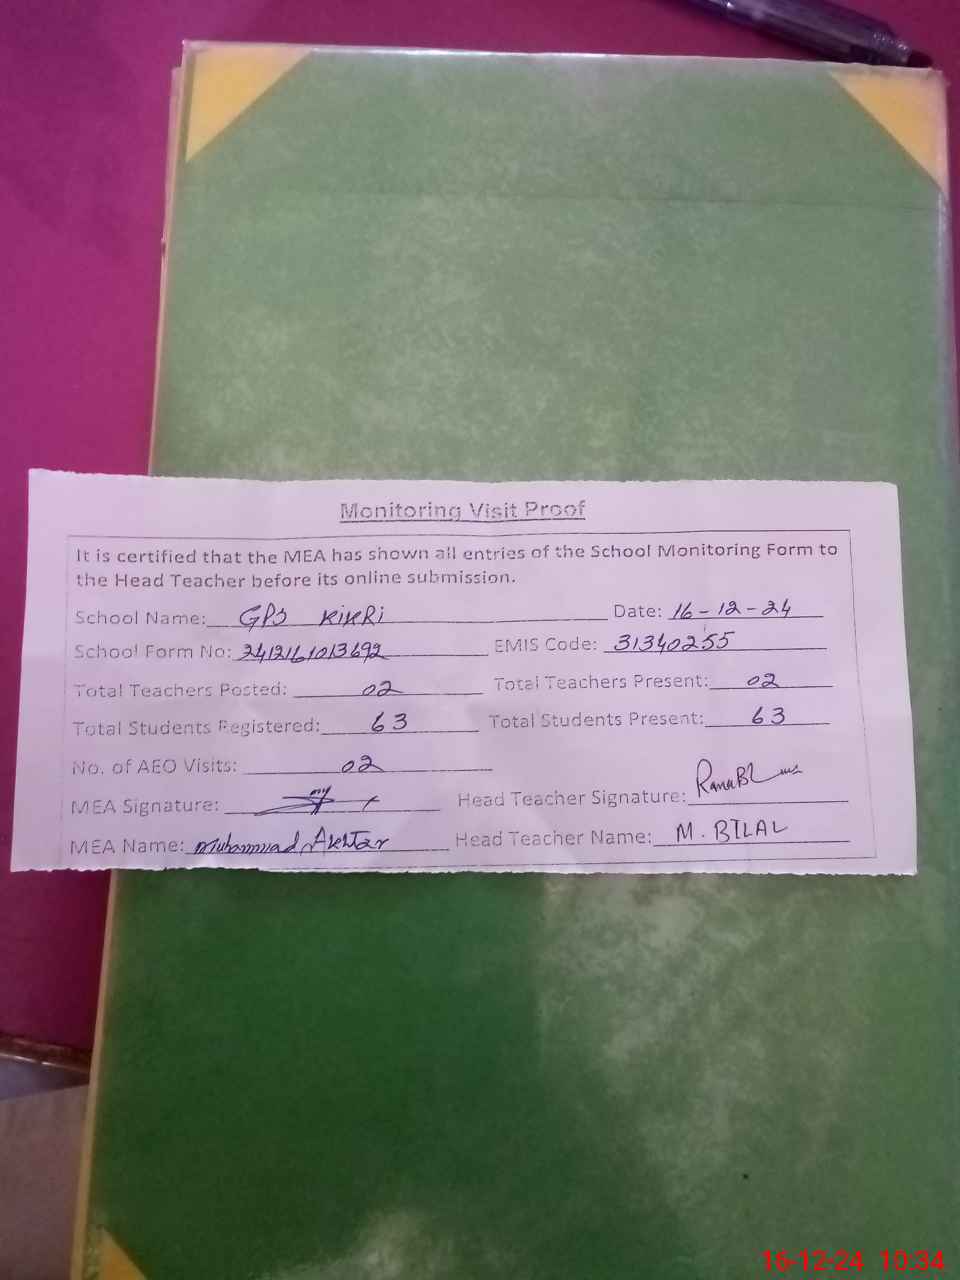 Monitoring Visit Proof
It is certified that the MEA has shown all entries of the School Monitoring Form to
the Head Teacher before its online submission.
School Name: GPS KIKRi Date: 16-12-24
School Form No: 2412161013692 EMIS Code: 31340255
Total Teachers Posted: 02 Total Teachers Present: 02
Total Students Registered: 63 Total Students Present: 63
No. of AEO Visits: 02
MEA Signature: Head Teacher Signature:
MEA Name: Muhammad Akhtar Head Teacher Name: M. BILAL
16-12-24 10:34